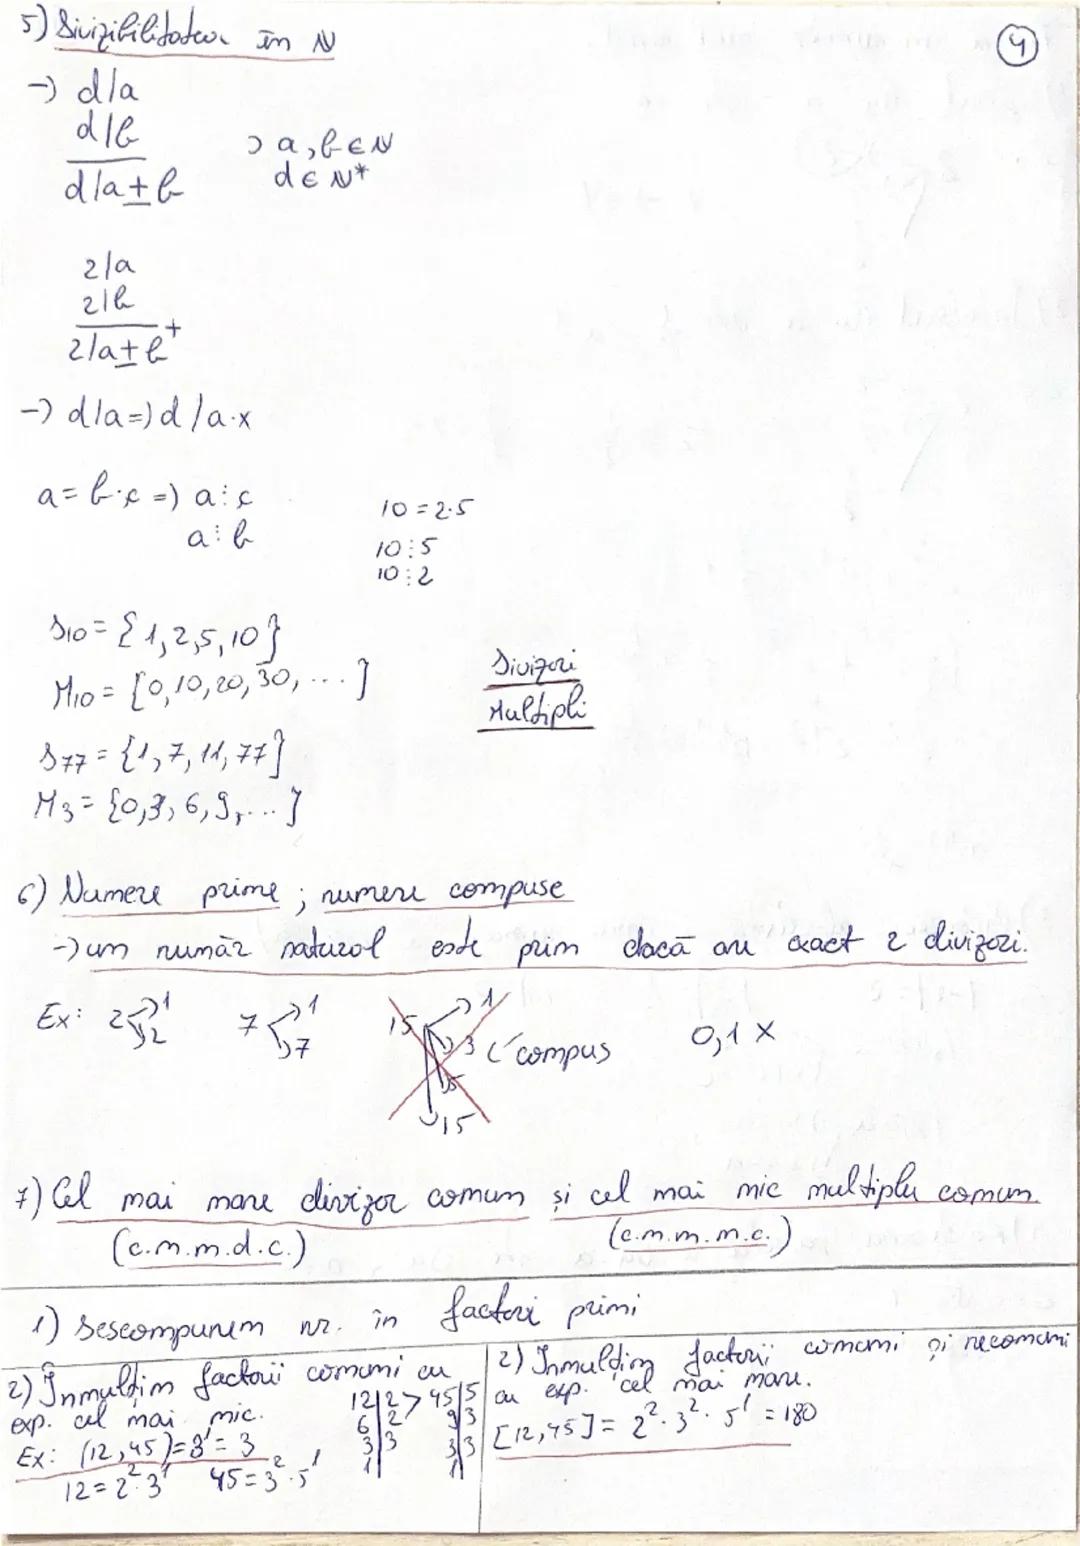 5) Divizibilitatea în N
4
→ d|a
d|b , a, b ∈ N
d|a±b d ∈ N*
2|a
2|b
2|a±b +
→ d|a ⇒ d|a·x
a = b·c ⇒ a⋮c
a⋮b
10 = 2·5
10⋮5
10⋮2
D10 = {1,2,5,10}
M10 = {0,10,20,30, ...}
Divizori
Multipli
D77 = {1,7,11,77}
M3 = {0,3,6,9,...}
6) Numere prime ; numere compuse
→ un număr natural este prim dacă are exact 2 divizori.
Ex: 2 1 2 7 1 7 15 1 3 5 15 compus 0,1 X
7) Cel mai mare divizor comun și cel mai mic multiplu comun
(c.m.m.d.c.) (c.m.m.m.c.)
1) Descompunem nr. în factori primi
2) Înmulțim factorii comuni cu
exp. cel mai mic.
Ex: (12,45) = 3¹ = 3
12 = 2²·3¹ 45 = 3²·5¹
12|2 > 45|5
6|2 9|3
3|3 3|3
1| 1|
2) Înmulțim factorii comuni și necomuni
cu exp. cel mai mare.
[12,45] = 2²·3²·5¹ = 180